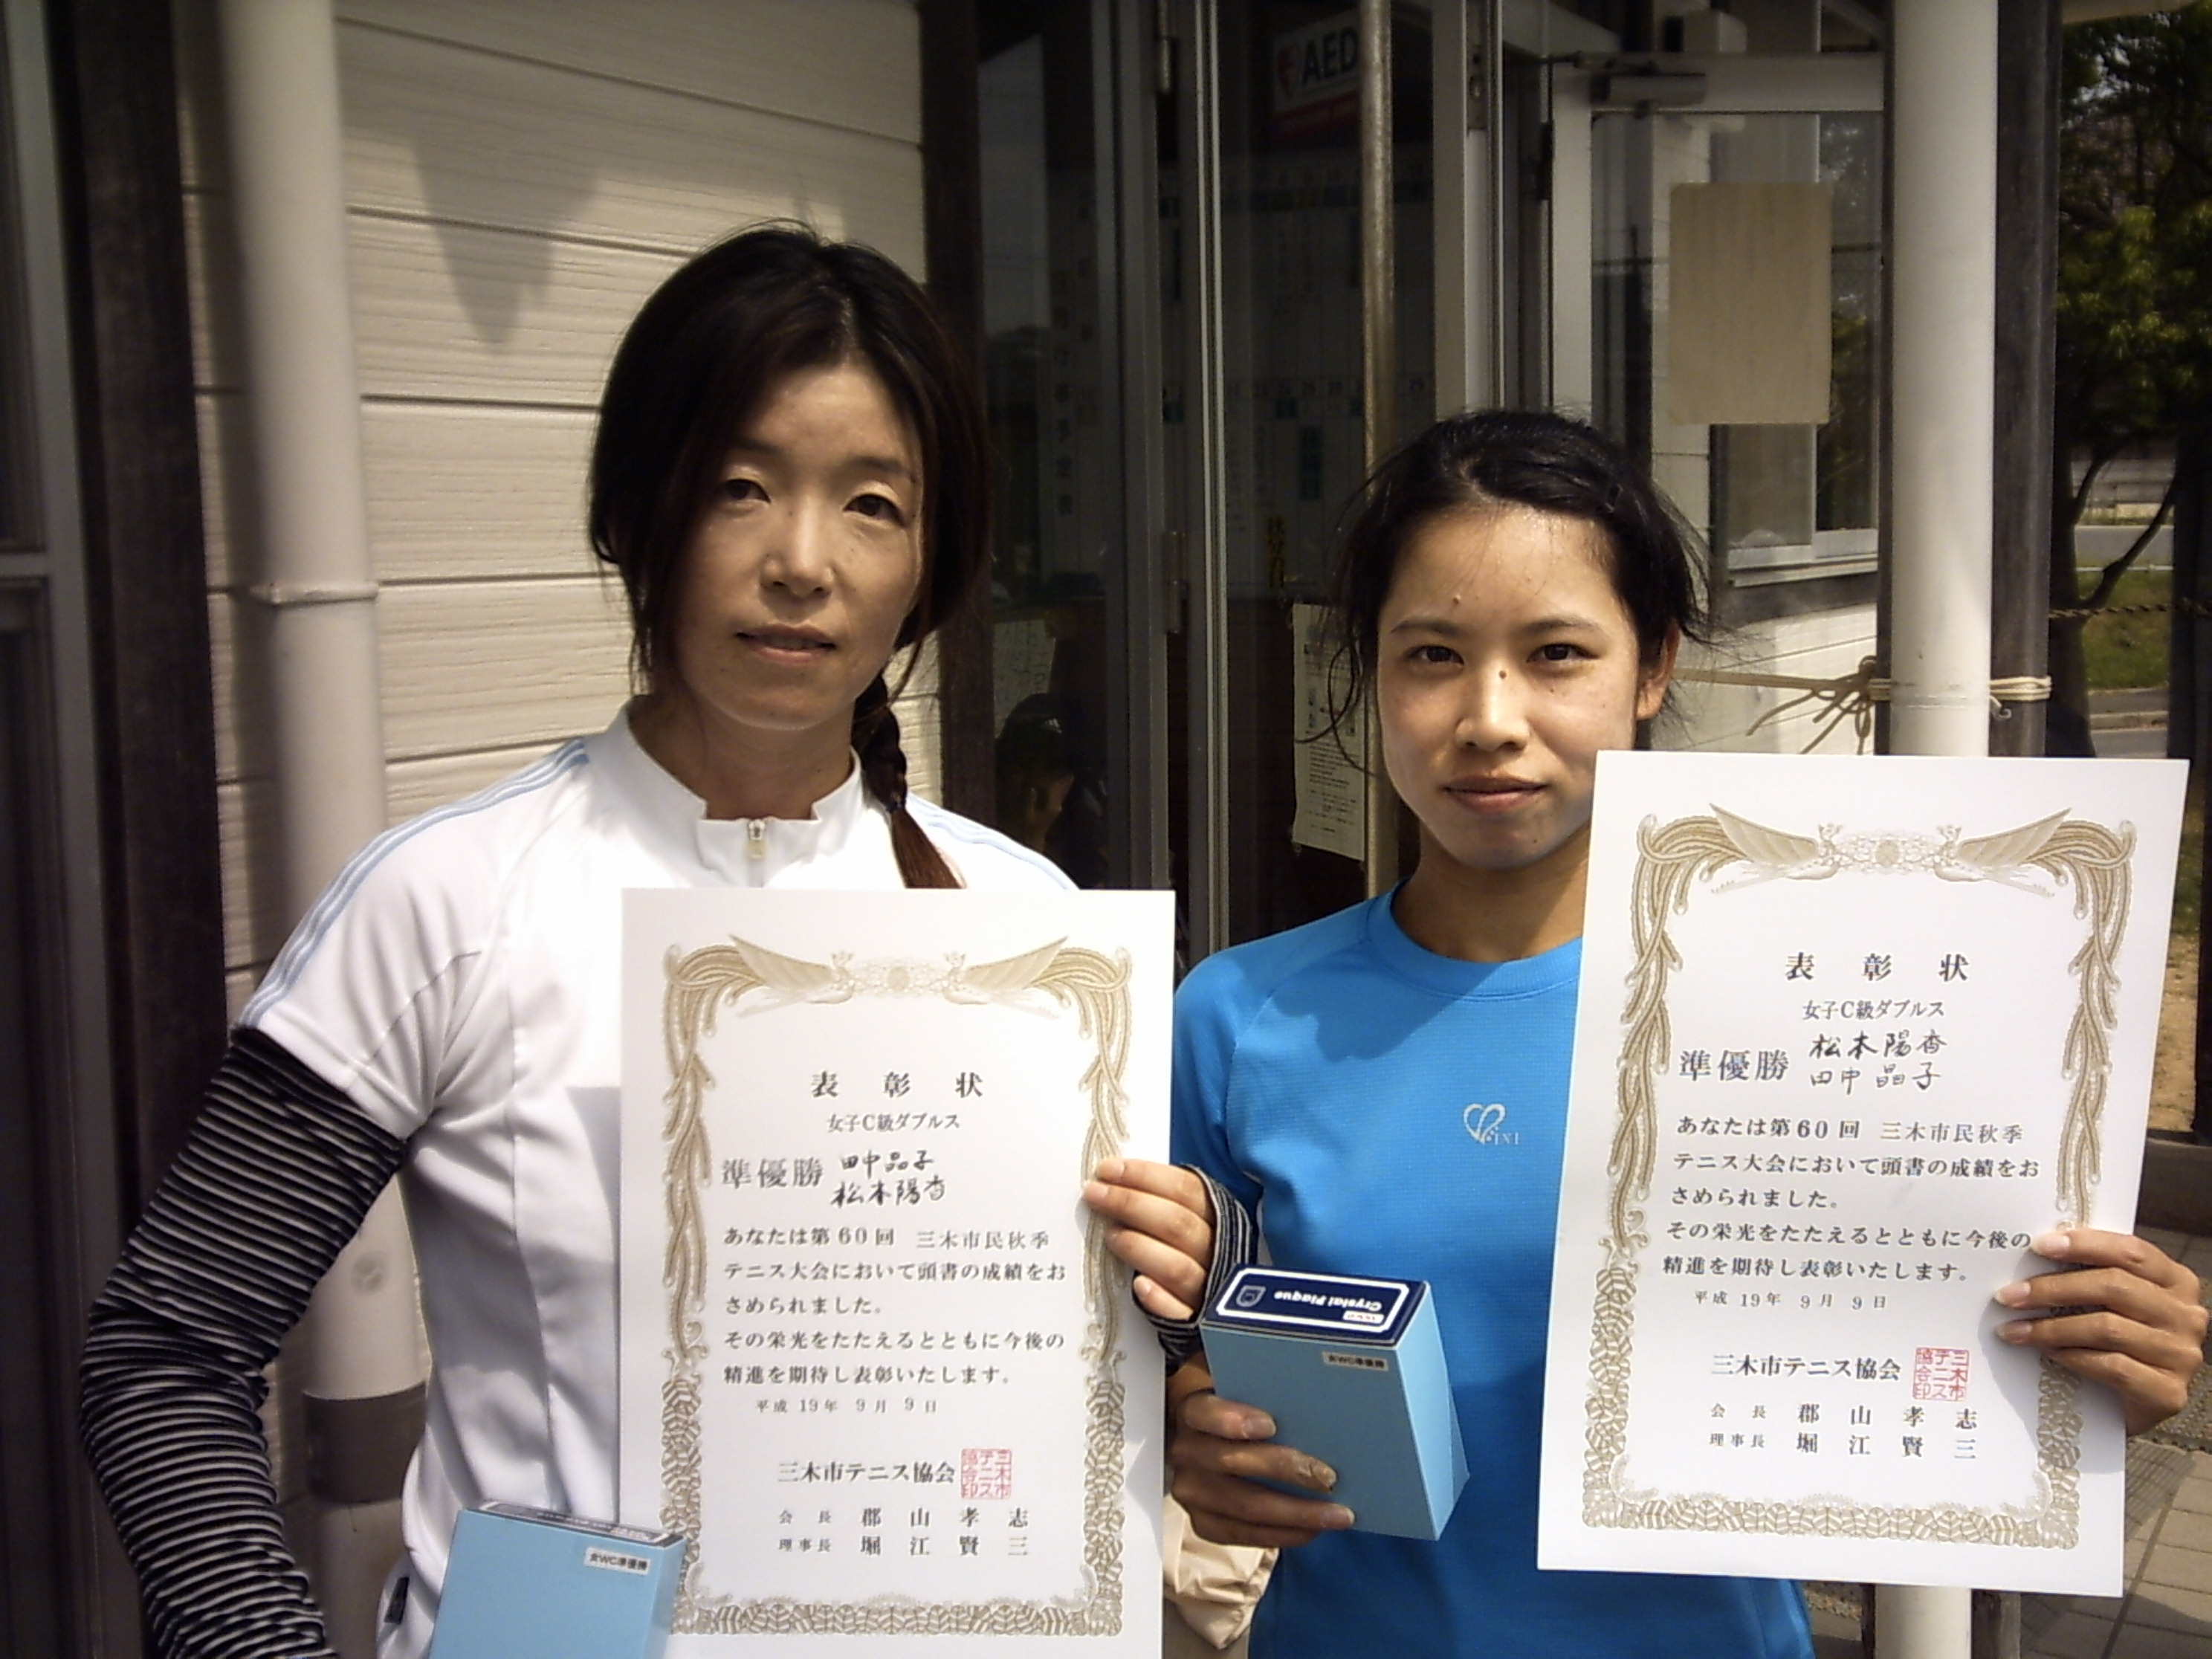 AED
表彰状
女子C級ダブルス
準優勝
田中晶子
松本陽香
あなたは第60回 三木市民秋季
テニス大会において頭書の成績をお
さめられました。
その栄光をたたえるとともに今後の
精進を期待し表彰いたします。
平成19年 9月 9日
三木市テニス協会
三木市
テニス
協会印
会長 郡山孝志
理事長 堀江賢三
女WC準優勝
Crystal Plaque
女WC準優勝
表彰状
女子C級ダブルス
準優勝
松本陽香
田中晶子
あなたは第60回 三木市民秋季
テニス大会において頭書の成績をお
さめられました。
その栄光をたたえるとともに今後の
精進を期待し表彰いたします。
平成19年 9月 9日
三木市テニス協会
三木市
テニス
協会印
会長 郡山孝志
理事長 堀江賢三